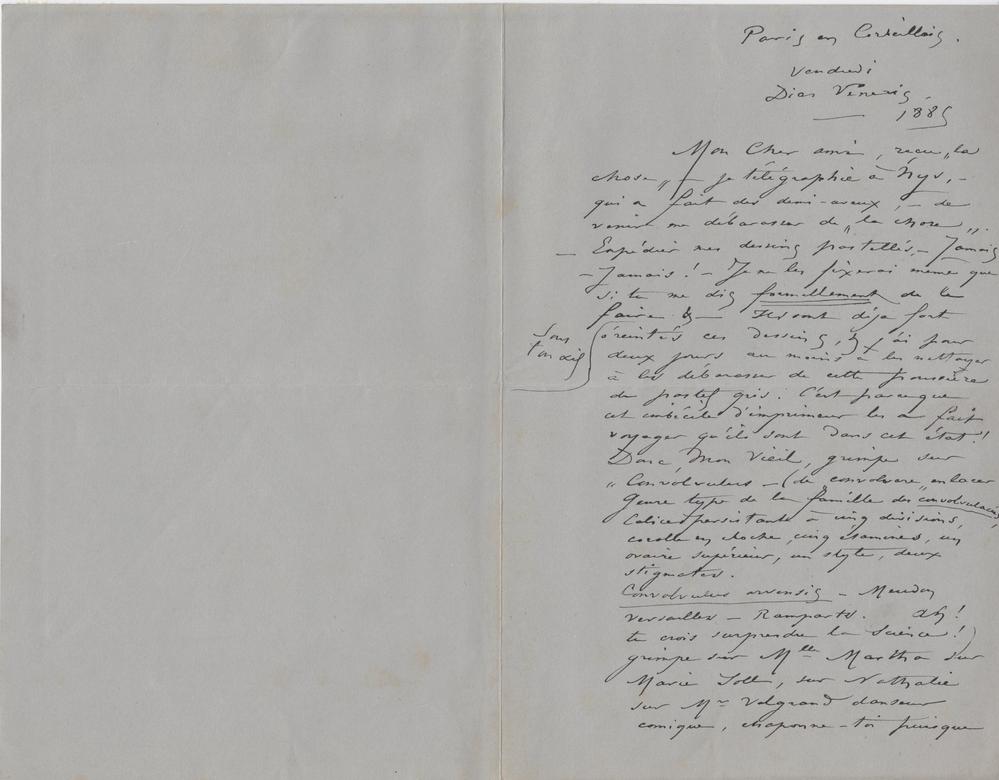 Paris en Corbeillois.
Vendredi
Dies Veneris
1885
Mon Cher ami, reçu „la
chose„ — je télégraphie à Nys, -
qui a fait des demi-aveux, - de
venir me débarasser de „la chose„.
— Expédier mes dessins pastellés, - Jamais
- Jamais! - Je ne les fixerai même que
si tu me dis formellement de le
faire. & — Ils sont déja fort
éreintés ces dessins, & j'ai pour
Sous
ton œil
deux jours au moins à les nettoyer
à les débarasser de cette poussière
de pastel gris. C'est parceque
cet imbécile d'imprimeur les a fait
voyager qu'ils sont dans cet état!
Donc, Mon Vieil, grimpe sur
„Convolvulus - (de convolvere, enlacer
Genre type de la famille des convolvulacées
Calice persistante à cinq divisions,
corolle en cloche, cinq étamines, un
ovaire supérieur, un style, deux
stigmates.
Convolvulus arvensis - Meudon
Versailles - Remparts. Ah!
tu crois surprendre la Science!)
grimpe sur Mlle Martha sur
Marie Joll, sur Nathalie
sur Mr Valgrand danseur
comique, chaponne-toi puisque